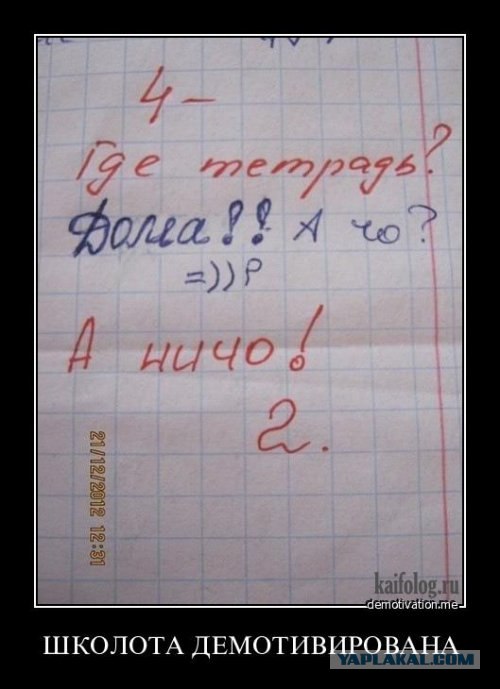 4-
Где тетрадь?
Дома!! А чо?
=))P
А ничо!
2.
21/12/2012 12:31
kaifolog.ru
demotivation.me
ШКОЛОТА ДЕМОТИВИРОВАНА
YAPLAKAL.COM